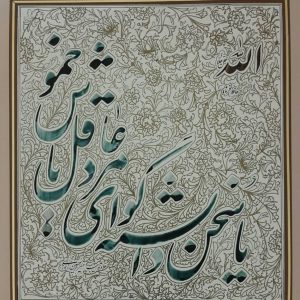 الله
یا سخن دانسته گو ای مرد عاقل یا خموش